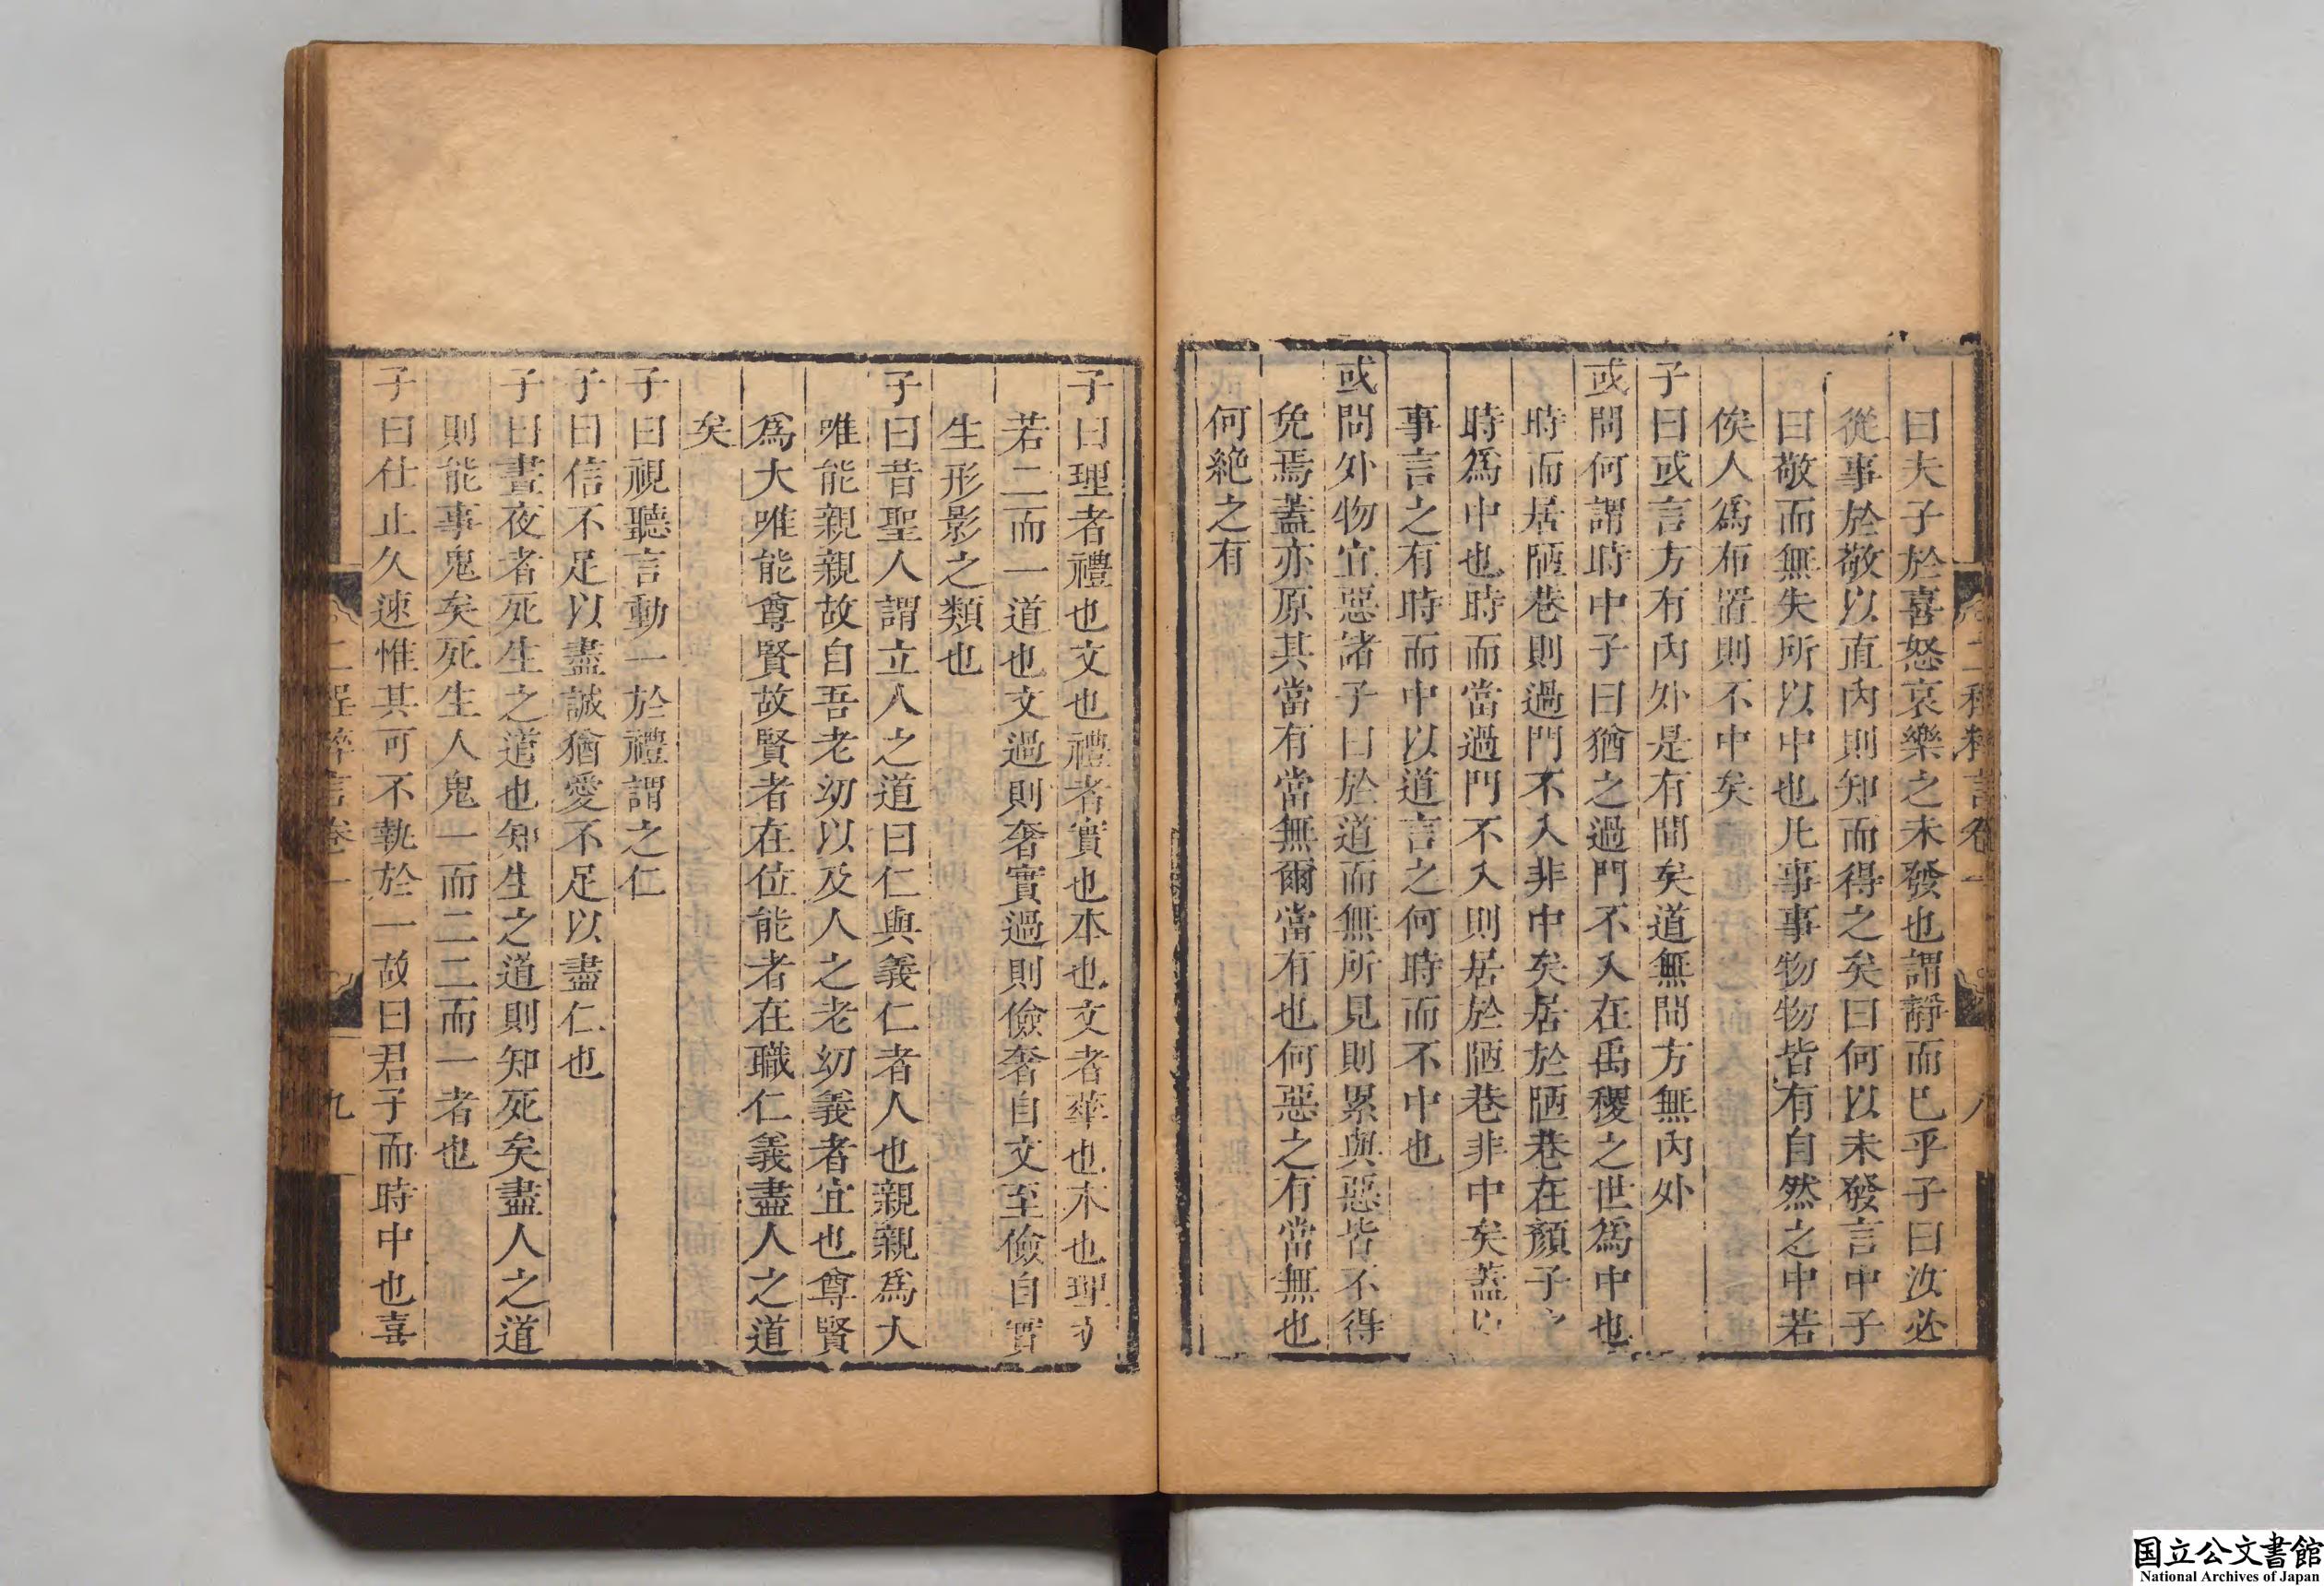 二程粹言卷一 八
曰夫子於喜怒哀樂之未發也謂靜而已乎子曰汝必
從事於敬以直內則知而得之矣曰何以未發言中子
曰敬而無失所以中也凡事事物物皆有自然之中若
俟人爲布置則不中矣
子曰或言方有內外是有間矣道無間方無內外
或問何謂時中子曰猶之過門不入在禹稷之世爲中也
時而居陋巷則過門不入非中矣居於陋巷在顏子之
時爲中也時而當過門不入則居於陋巷非中矣蓋以
事言之有時而中以道言之何時而不中也
或問外物宜惡諸子曰於道而無所見則累與惡皆不得
免焉蓋亦原其當有當無爾當有也何惡之有當無也
何絶之有
子曰理者禮也文也禮者實也本也文者華也末也理文
若二而一道也文過則奢實過則儉奢自文至儉自實
生形影之類也
子曰昔聖人謂立人之道曰仁與義仁者人也親親爲大
唯能親親故自吾老幼以及人之老幼義者宜也尊賢
爲大唯能尊賢故賢者在位能者在職仁義盡人之道
矣
子曰視聽言動一於禮謂之仁
子曰信不足以盡誠猶愛不足以盡仁也
子曰晝夜者死生之道也知生之道則知死矣盡人之道
則能事鬼矣死生人鬼一而二二而一者也
子曰仕止久速惟其可不執於一故曰君子而時中也喜
二程粹言卷一 九
国立公文書館
National Archives of Japan